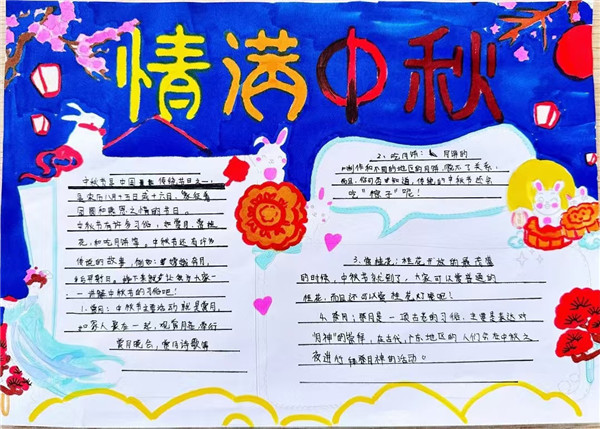 情满中秋
中秋节是中国重要传统节日之一,
是农历八月十五日或十六日,象征着
团圆和美景之情的节日。
中秋节有许多习俗,如赏月、赏桂
花、和吃月饼等。中秋节还有许多
传统的故事,例如:嫦娥奔月,
后羿射日。接下来就让我为大家一
一讲解中秋节的习俗吧!
1、赏月:中秋节主要活动就是赏月,
和家人聚在一起,观赏月亮,举行
赏月晚会,赏月诗歌等
2、吃月饼:月饼的
制作和不同的地区的月饼
而且,你可否知道,传统的中秋节还会
吃“粽子”呢!
3、赏桂花:桂花开放的最茂盛
的时候,中秋节就到了,大家可以赏普通的
桂花,而且还可以赏桂花灯呢吧!
4、祭月:祭月是一项古老的习俗,主要是表达对
“月神”的崇拜,在古代,广东地区的人们会在中秋之
夜进行拜祭月神的活动。